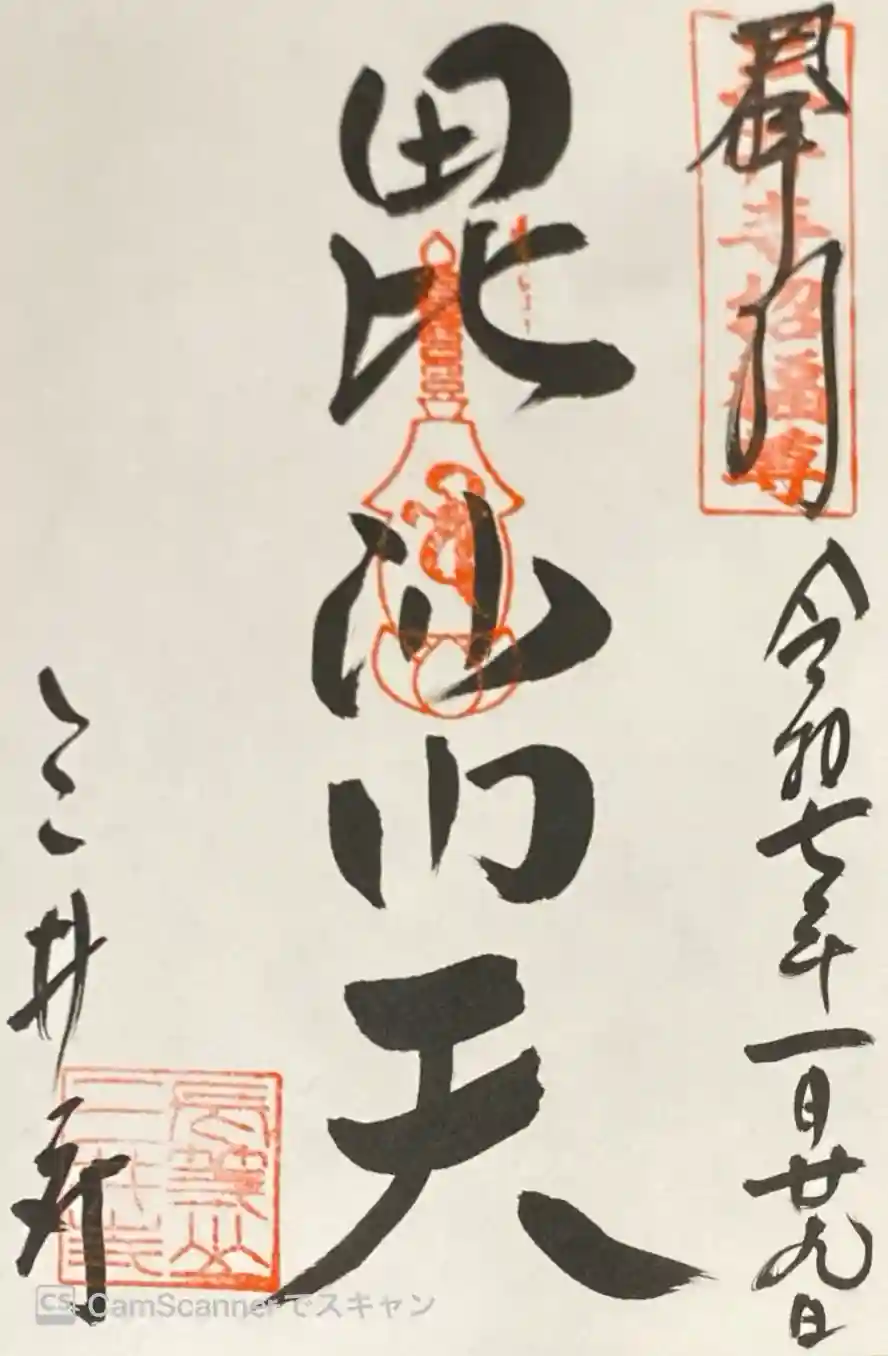 奉拝
令和七年一月廿九日
毘沙門天
三井寺
招福尊
CS CamScannerでスキャン